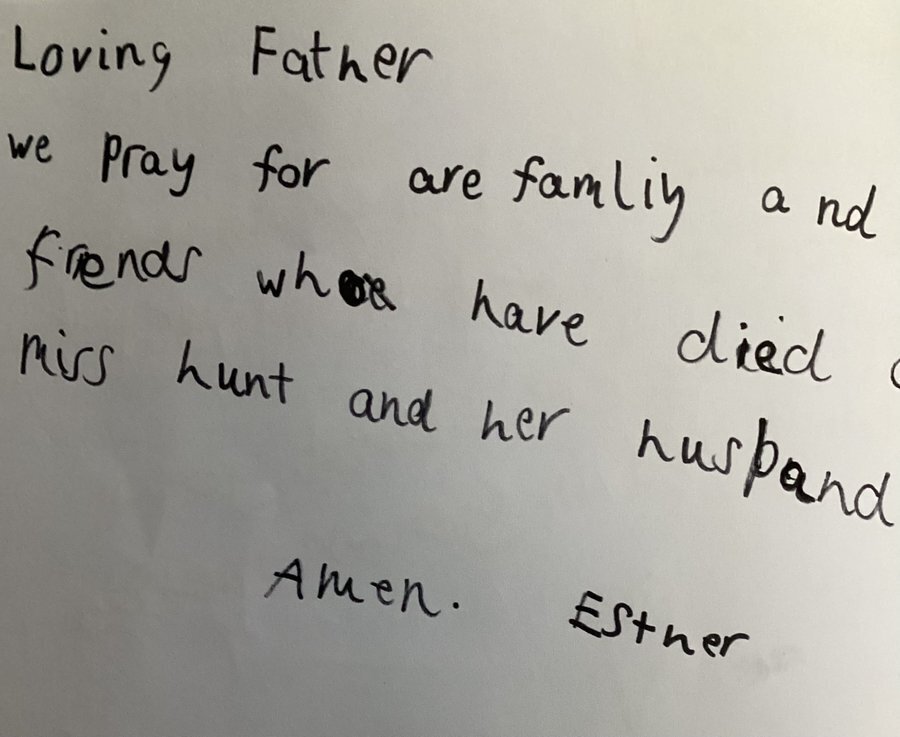 Loving Father
we pray for are famliy and
friends who have died
miss hunt and her husband
Amen. Esther